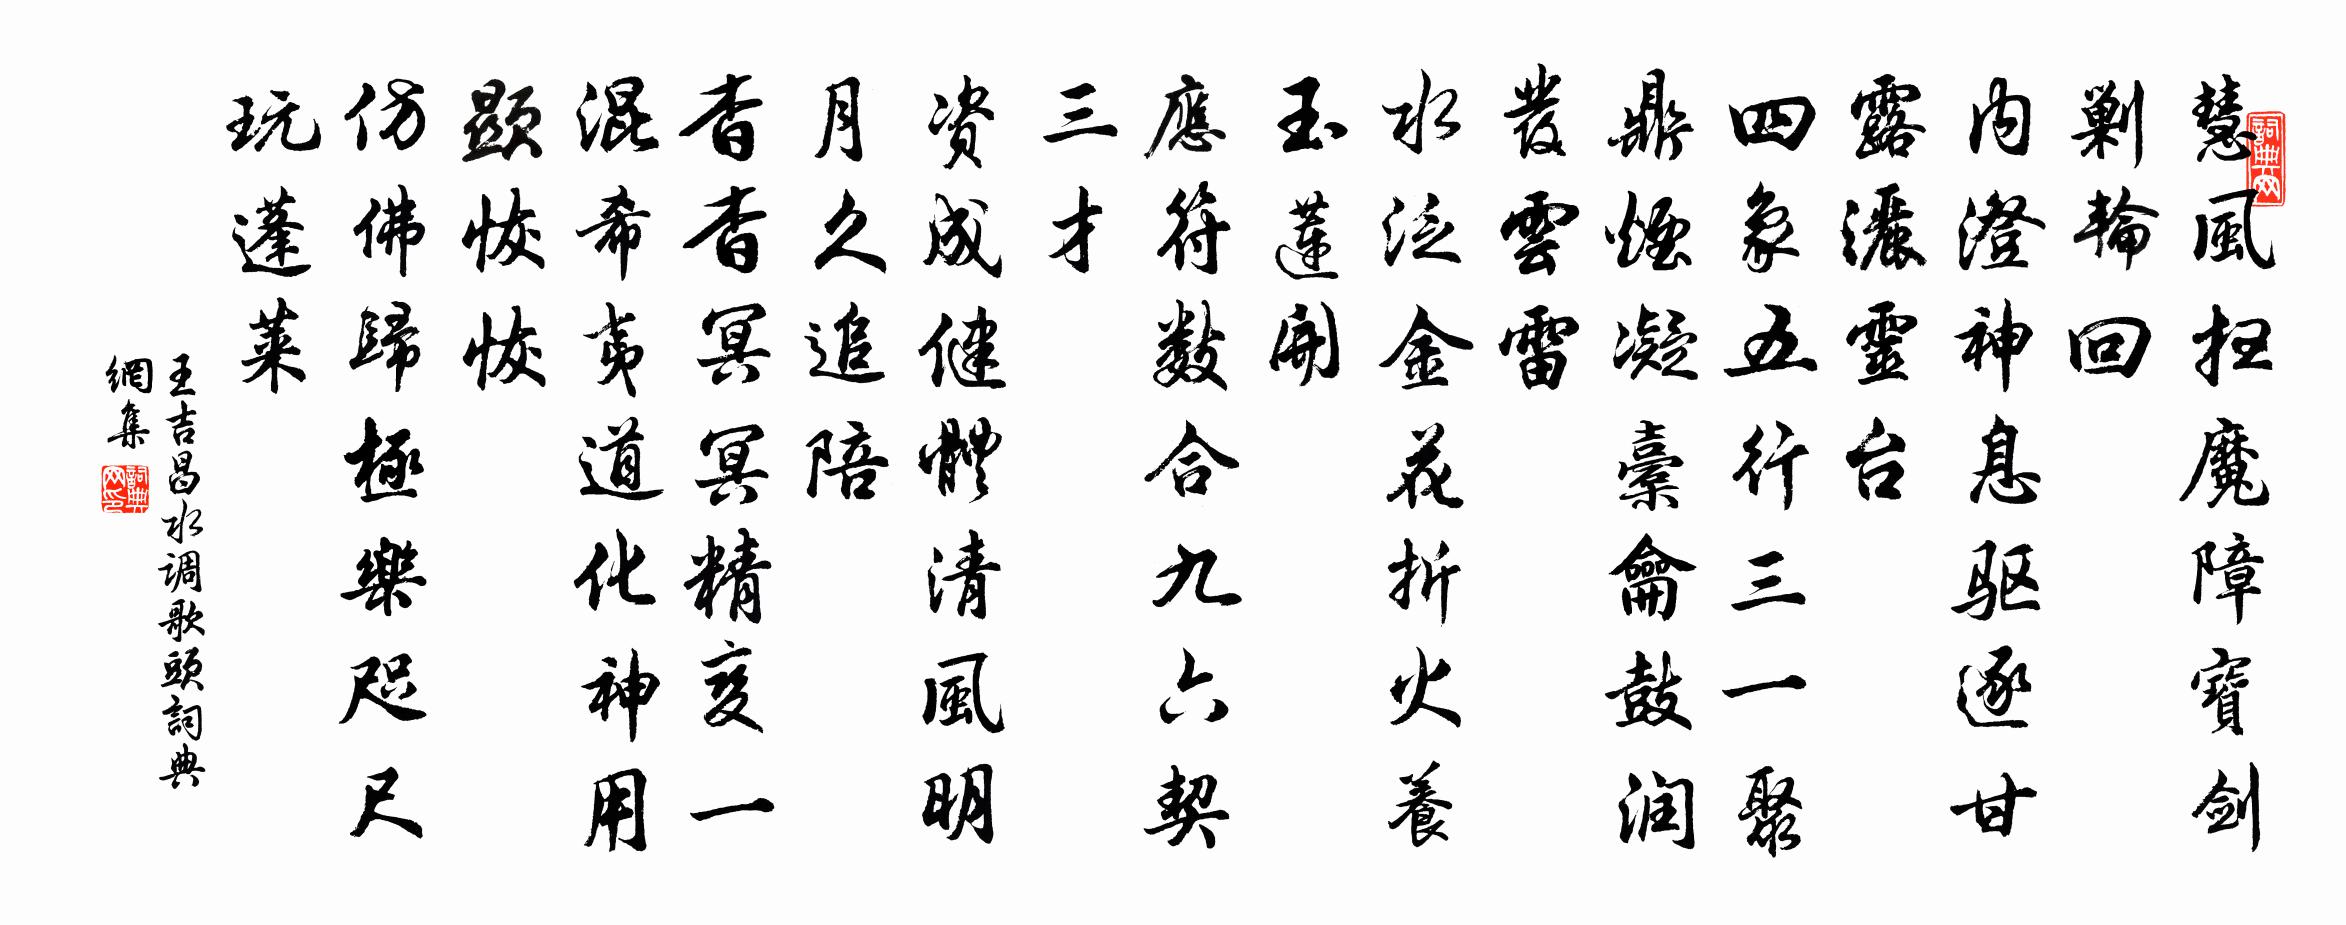 慧風扫魔障寶剑
剿輪回
内澄神息驱逐甘
露灑靈台
四象五行三一聚
鼎煙凝橐龠鼓润
發雲雷
水泛金花折火養
玉蓮開
應符数合九六契
三才
资成健體清風明
月久追陪
杳杳冥冥精变一
混希夷道化神用
顯恢恢
仿佛歸極樂咫尺
玩蓬莱
王吉昌水调歌頭詞典
網集
詞典网
詞典网印